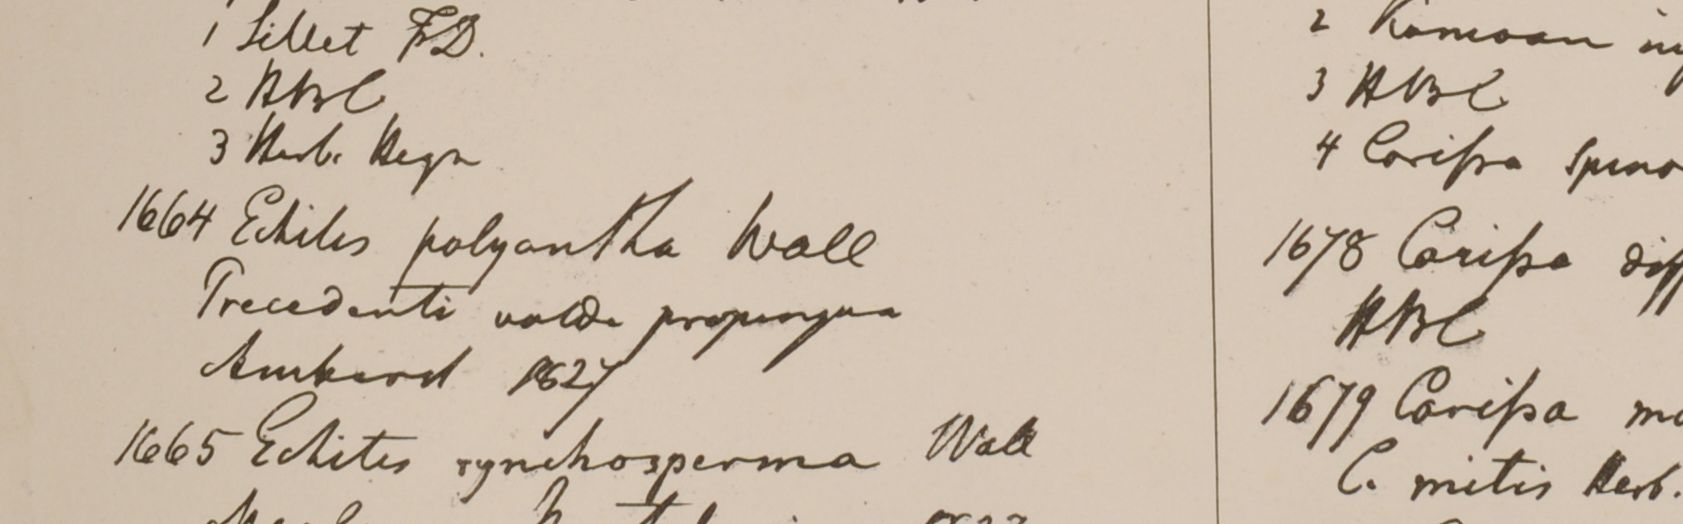 1 Sillet F.D.
2 HBC
3 Herb. Heyn
1664 Echites polyantha Wall
Precedenti valde propinqua
Amherst 1827
1665 Echites rynchosperma Wall
2 Kamoan
3 HBC
4 Carissa spino
1678 Carissa diff
HBC
1679 Carissa ma
C. mitis Herb.